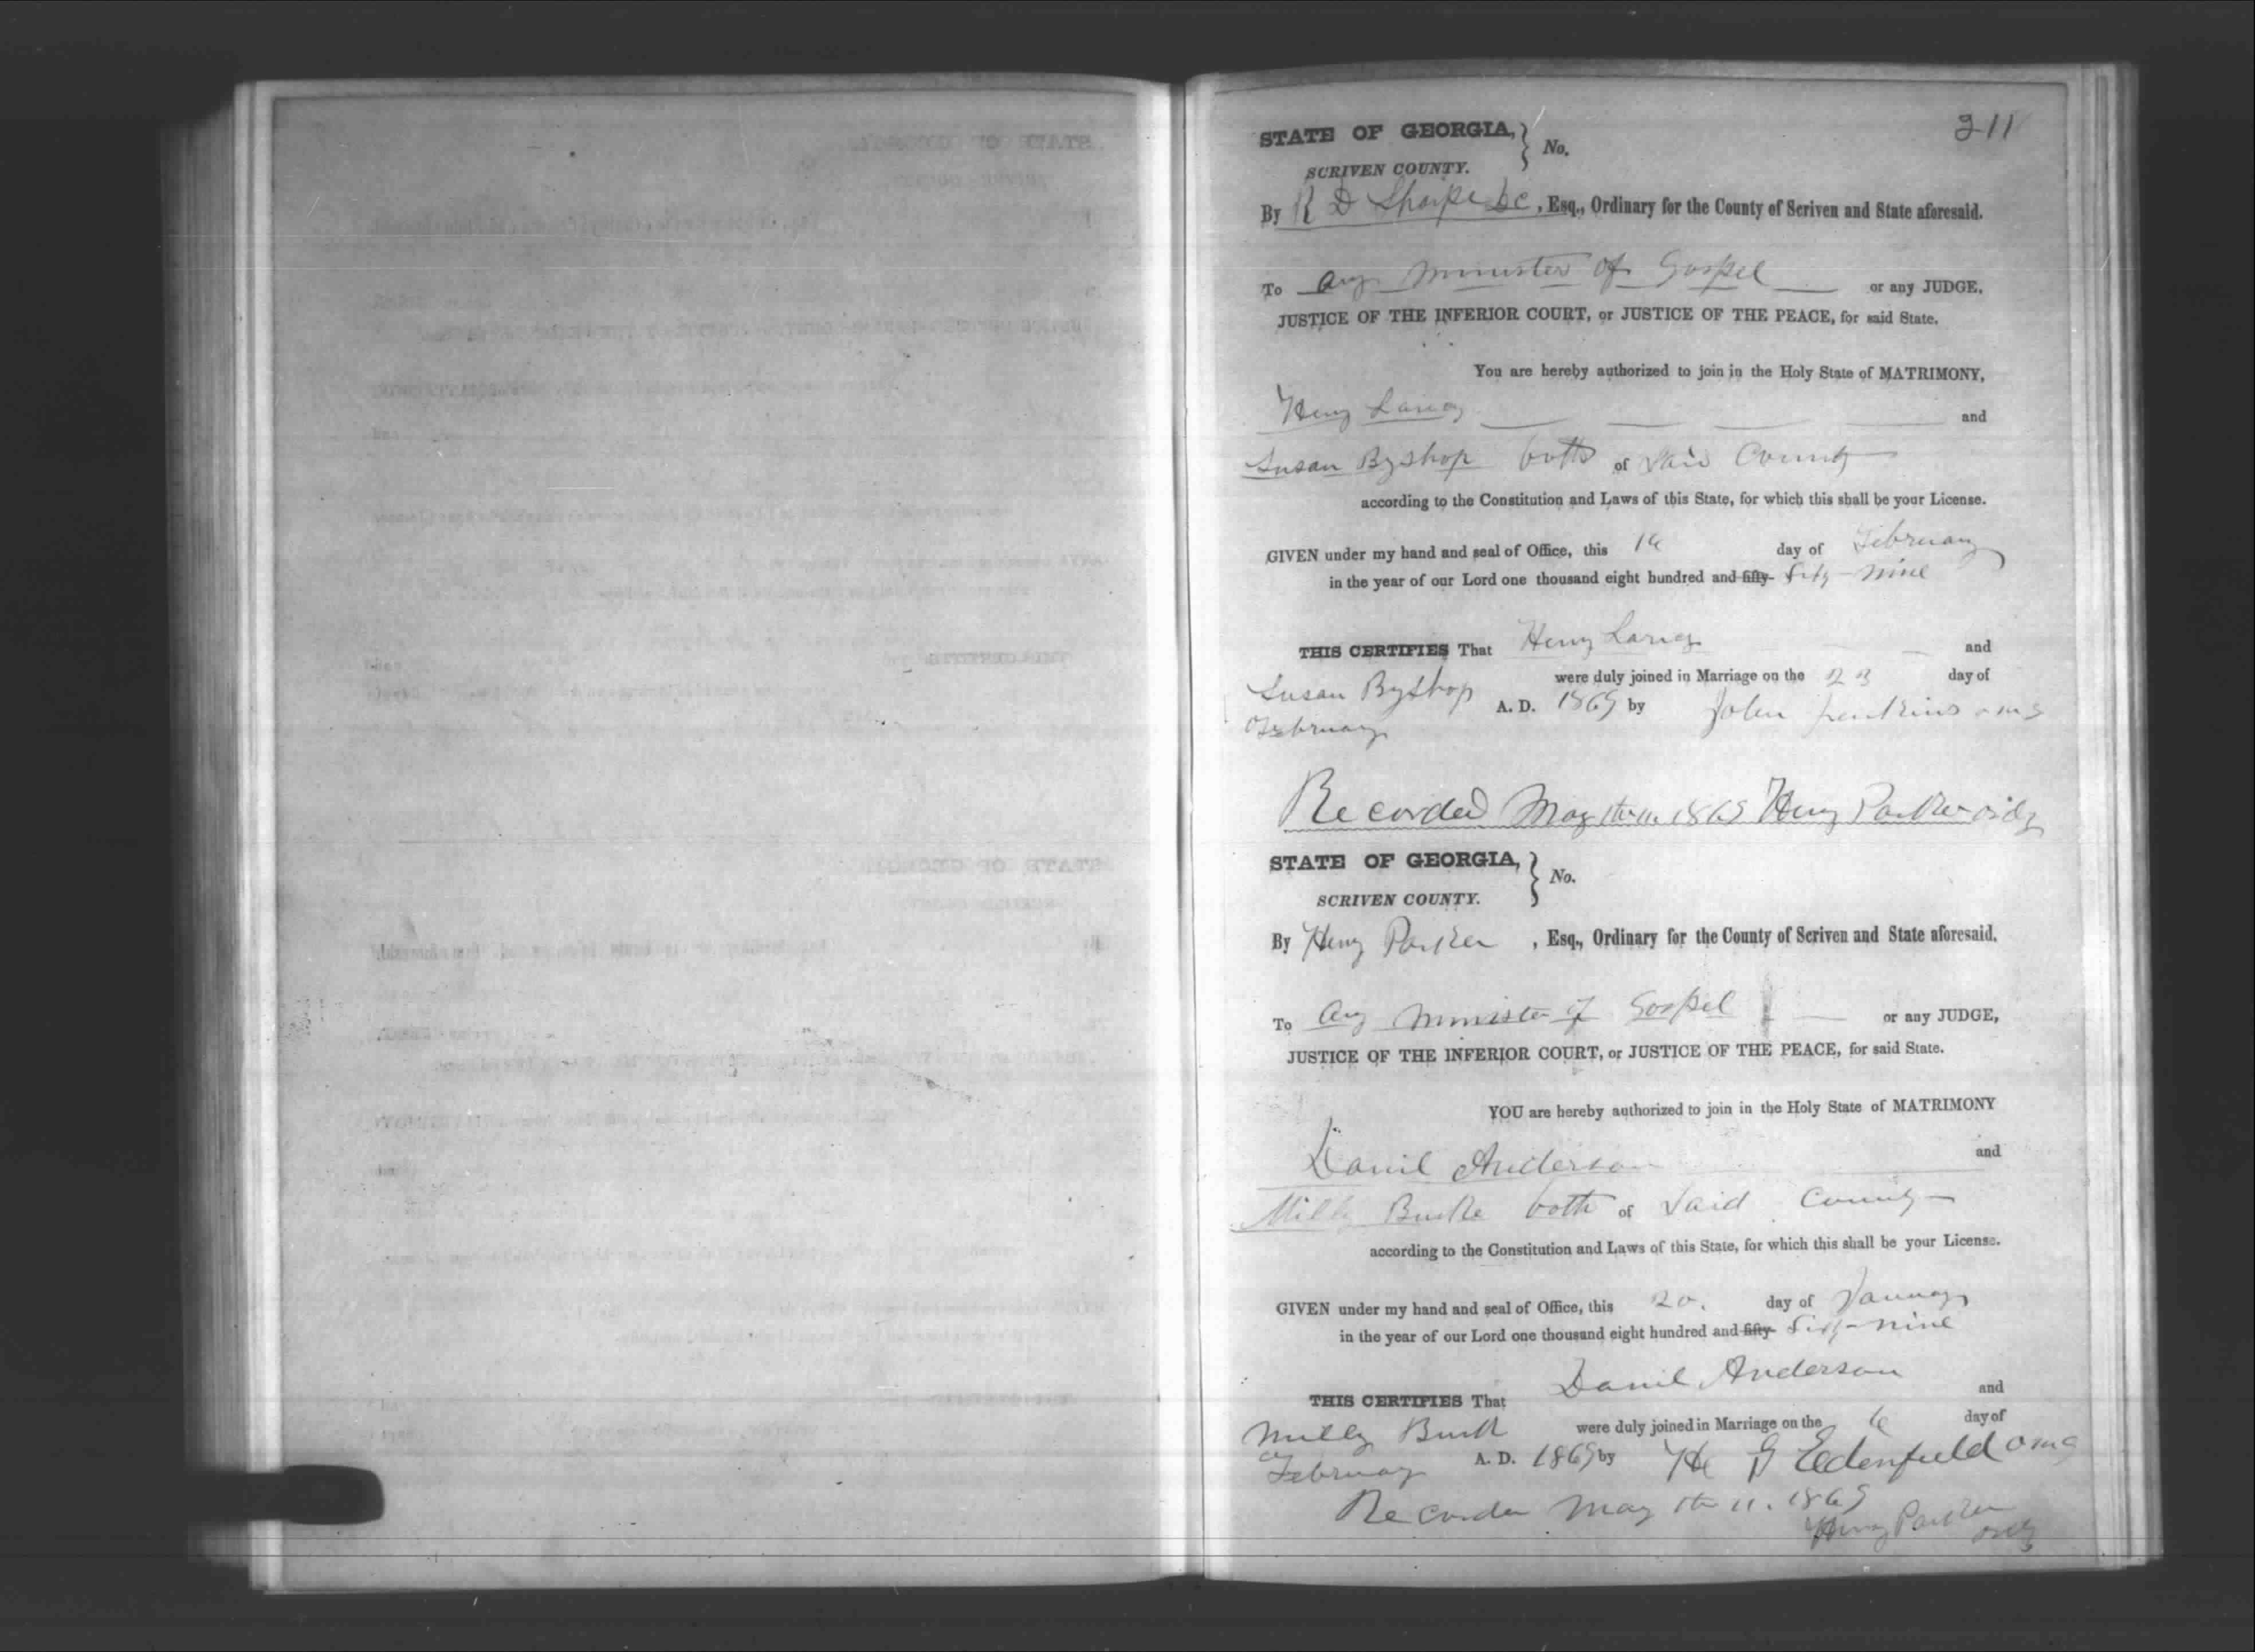 211
STATE OF GEORGIA, } No.
SCRIVEN COUNTY.
By R D Sharpe DC, Esq., Ordinary for the County of Scriven and State aforesaid.
To any Minister of Gospel or any JUDGE,
JUSTICE OF THE INFERIOR COURT, or JUSTICE OF THE PEACE, for said State.
You are hereby authorized to join in the Holy State of MATRIMONY,
Henry and
Susan Byshop both of Said County
according to the Constitution and Laws of this State, for which this shall be your License.
GIVEN under my hand and seal of Office, this day of February
in the year of our Lord one thousand eight hundred and fifty nine
THIS CERTIFIES That Henry and
Susan Byshop were duly joined in Marriage on the 23 day of
February A. D. 1869 by John Jenkins omg
Recorded May 11 1869 Henry Parker ordy
STATE OF GEORGIA, } No.
SCRIVEN COUNTY.
By Henry Parker, Esq., Ordinary for the County of Scriven and State aforesaid.
To any Minister of Gospel or any JUDGE,
JUSTICE OF THE INFERIOR COURT, or JUSTICE OF THE PEACE, for said State.
YOU are hereby authorized to join in the Holy State of MATRIMONY
Danil Anderson and
Milly Burke both of Said County
according to the Constitution and Laws of this State, for which this shall be your License.
GIVEN under my hand and seal of Office, this 20. day of January
in the year of our Lord one thousand eight hundred and fifty nine
THIS CERTIFIES That Danil Anderson and
Milly Burk were duly joined in Marriage on the 6 day of
February A. D. 1869 by H G Edenfield omg
Recorded May the 11. 1869
Henry Parker
ordy